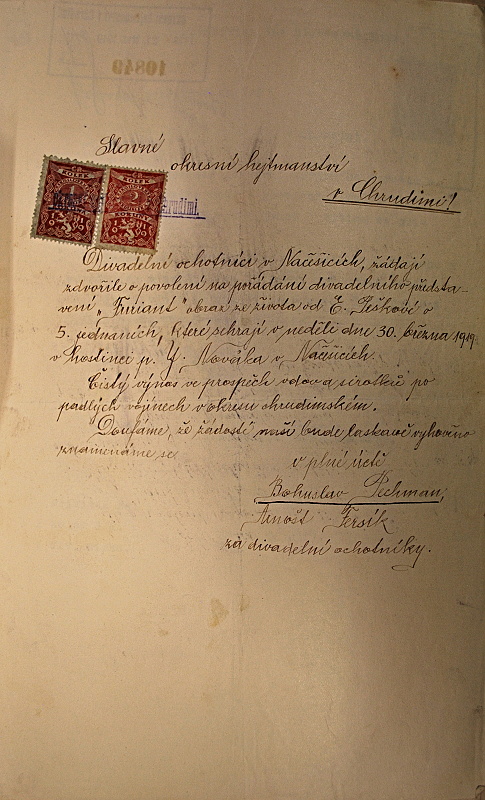 Slavné
okresní hejtmanství
v Chrudimi!
Divadelní ochotníci v Načešicích, žádají
zdvořile o povolení na pořádání divadelního předsta-
vení „Furiant" obraz ze života od E. Peškové o
5. jednáních, které sehrají v neděli dne 30. března 1919.
v hostinci p. J. Nováka v Načešicích.
Čistý výnos ve prospěch vdov a sirotků po
padlých vojínech v okresu chrudimském.
Doufáme, že žádosti naší bude laskavě vyhověno
znamenáme se
v plné úctě
Bohuslav Pechman,
Arnošt Teršík
za divadelní ochotníky.